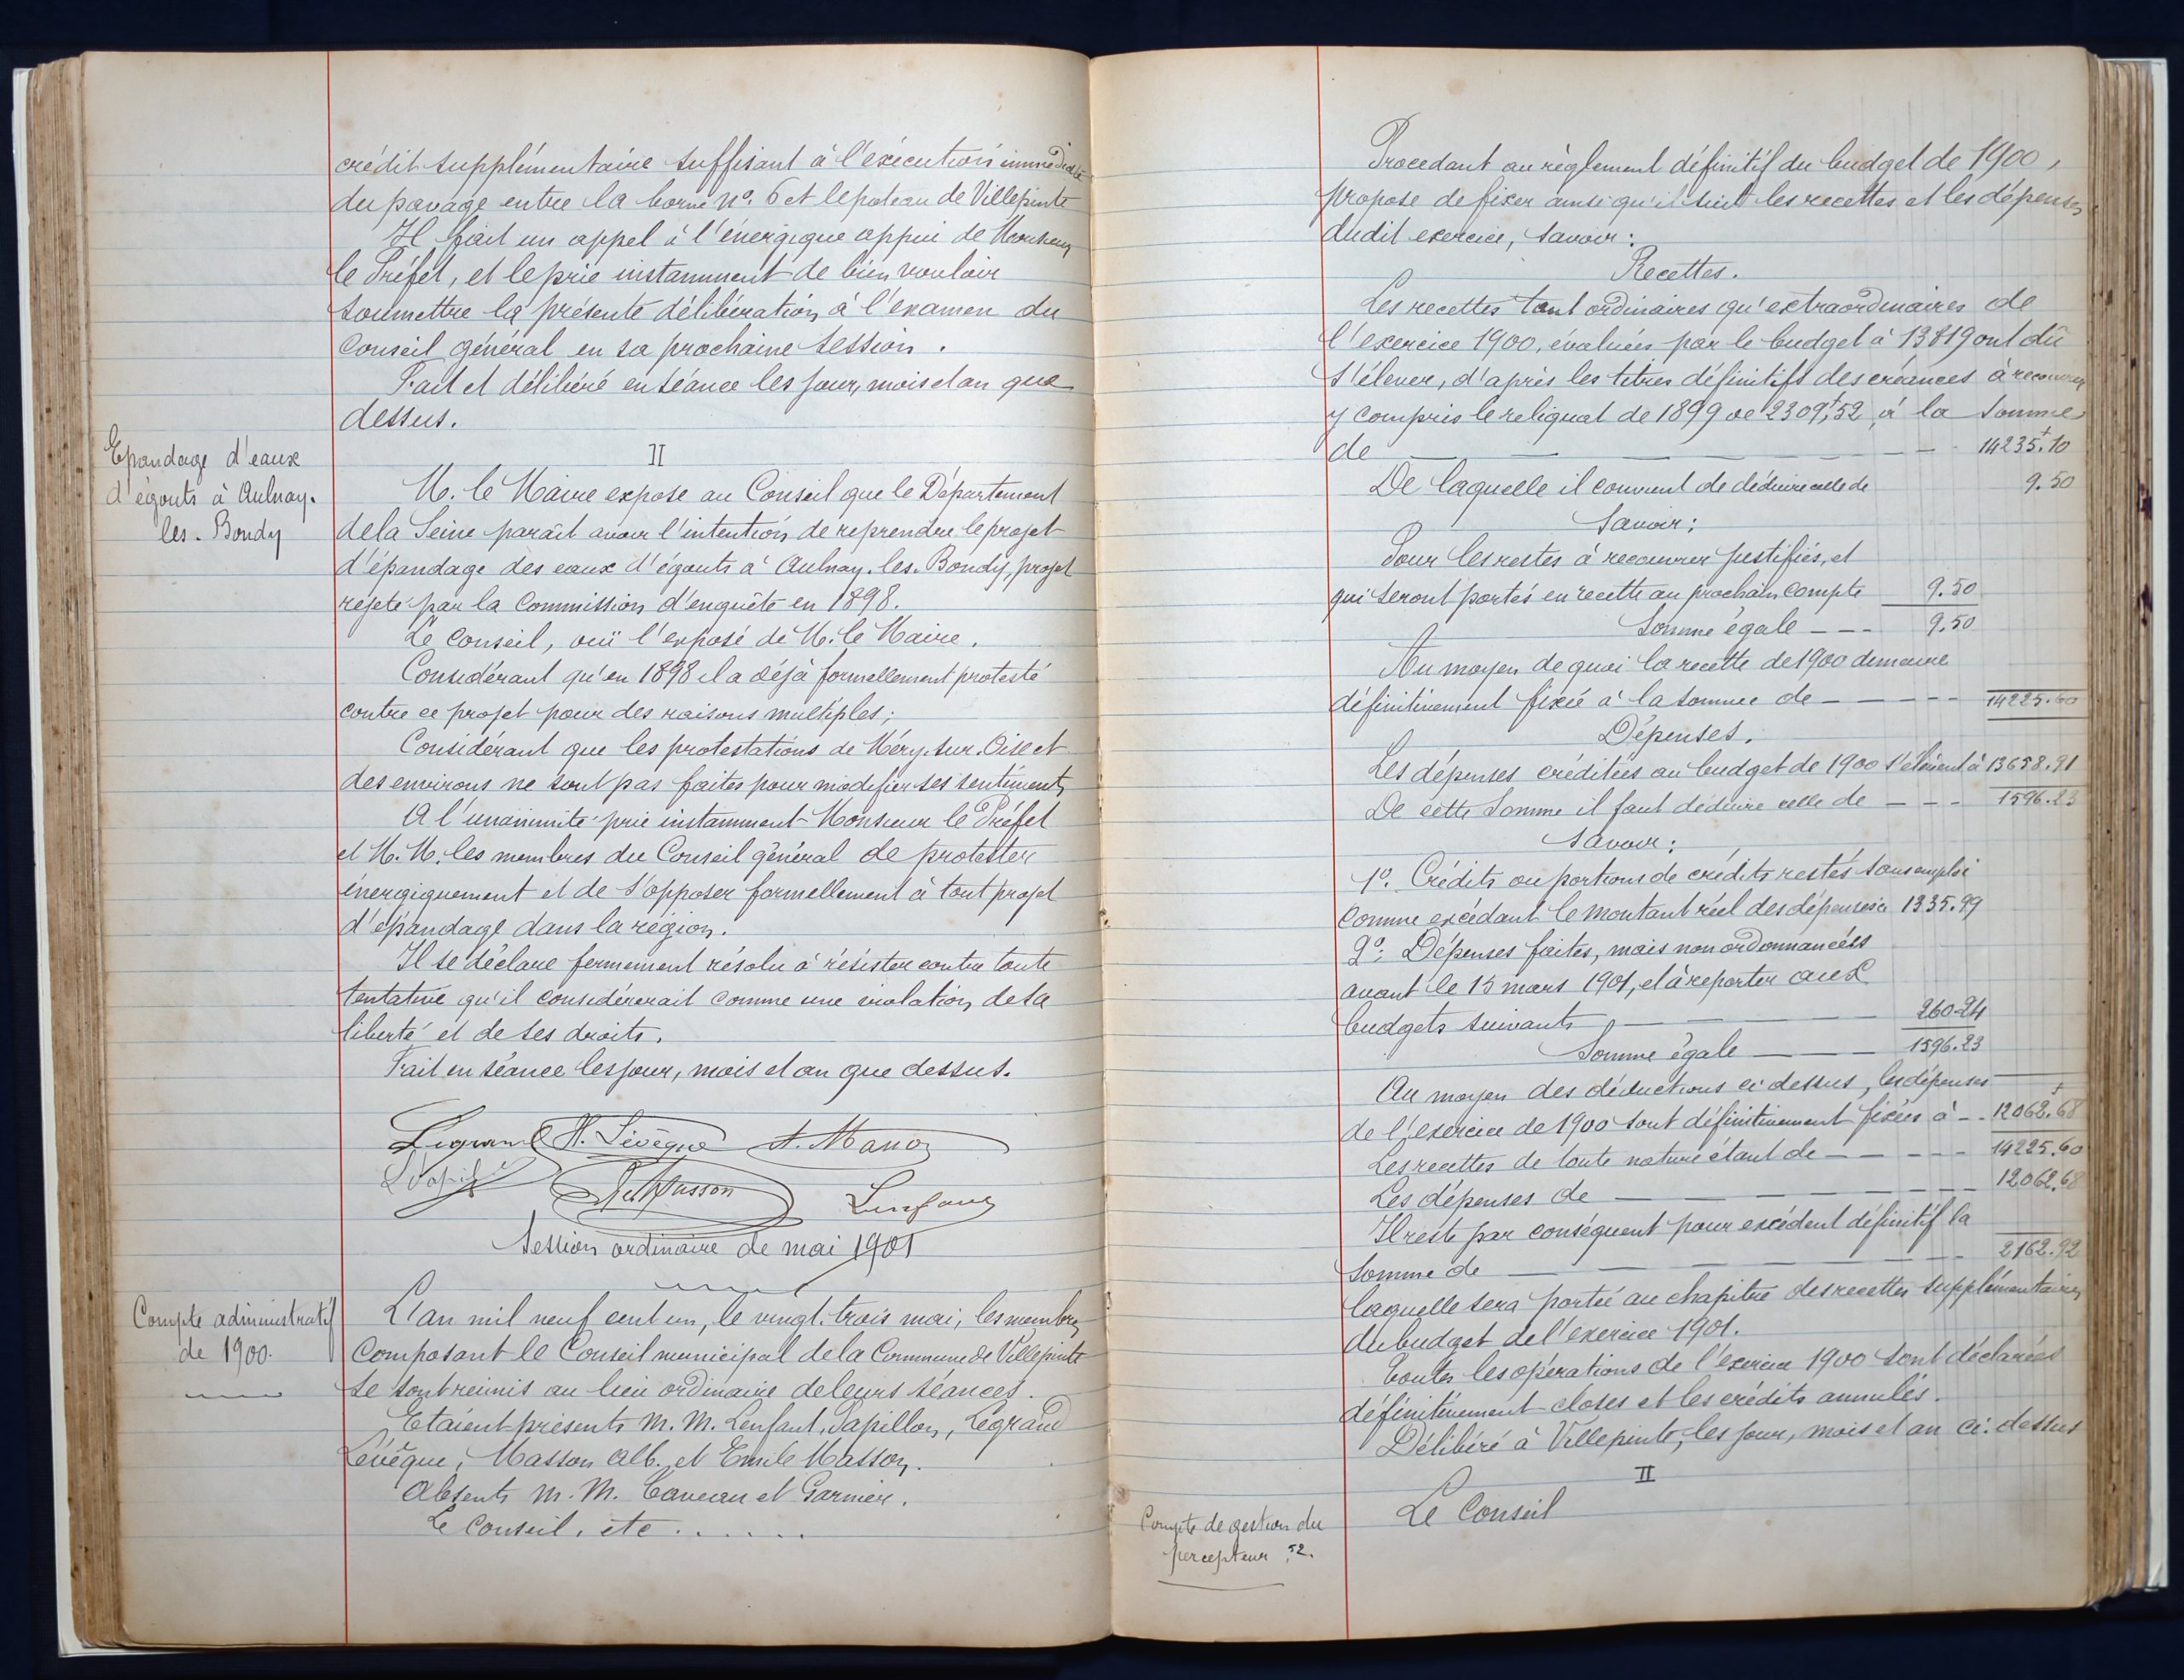 crédit supplémentaire suffisant à l'exécution immédiate
du pavage entre la borne n°. 6 et le poteau de Villepinte
Il fait un appel à l'énergique appui de Monsieur
le Préfet, et le prie instamment de bien vouloir
soumettre la présente délibération à l'examen du
Conseil général en sa prochaine session.
Fait et délibéré en séance les jour, mois et an que
dessus.
II
Epandage d'eaux
d'égouts à Aulnay-
les-Bondy
M. le Maire expose au Conseil que le Département
de la Seine paraît avoir l'intention de reprendre le projet
d'épandage des eaux d'égouts à Aulnay-les-Bondy, projet
rejeté par la Commission d'enquête en 1898.
Le Conseil, ouï l'exposé de M. le Maire.
Considérant qu'en 1898 il a déjà formellement protesté
contre ce projet pour des raisons multiples;
Considérant que les protestations de Méry-sur-Oise et
des environs ne sont pas faites pour modifier ses sentiments
A l'unanimité prie instamment Monsieur le Préfet
et M. M. les membres du Conseil général de protester
énergiquement et de s'opposer formellement à tout projet
d'épandage dans la région.
Il se déclare fermement résolu à résister contre toute
tentative qu'il considérerait comme une violation de sa
liberté et de ses droits.
Fait en séance les jour, mois et an que dessus.
Legrand H. Lévêque A. Masson
Masson Lenfant
Session ordinaire de mai 1901
Compte administratif
de 1900.
L'an mil neuf cent un, le vingt-trois mai, les membres
composant le Conseil municipal de la Commune de Villepinte
se sont réunis au lieu ordinaire de leurs séances.
Etaient présents M. M. Lenfant, Papillon, Legrand
Lévêque, Masson Alb. et Emile Masson.
Absents M. M. Caveau et Garnier.
Le Conseil, etc.......
Procédant au règlement définitif du budget de 1900,
propose de fixer ainsi qu'il suit les recettes et les dépenses
dudit exercice, savoir:
Recettes.
Les recettes tant ordinaires qu'extraordinaires de
l'exercice 1900, évaluées par le budget à 13819 ont dû
s'élever, d'après les titres définitifs des créances à recouvrer
y compris le reliquat de 1899 de 2309f,52, à la somme
de — — — — — 14235f.10
De laquelle il convient de déduire celle de 9.50
Savoir:
Pour les restes à recouvrer justifiés, et
qui seront portés en recette au prochain compte 9.50
Somme égale --- 9.50
Au moyen de quoi la recette de 1900 demeure
définitivement fixée à la somme de - - - - - 14225.60
Dépenses.
Les dépenses créditées au budget de 1900 s'élèvent à 13658.91
De cette somme il faut déduire celle de - - - 1596.23
Savoir:
1°. Crédits ou portions de crédits restés sans emploi
comme excédant le montant réel des dépenses ci 1335.99
2°: Dépenses faites, mais non ordonnancées
avant le 15 mars 1901, et à reporter aux
budgets suivants — — — 260.24
Somme égale — — 1596.23
Au moyen des déductions ci-dessus, les dépenses
de l'exercice de 1900 sont définitivement fixées à - - 12062f.68
Les recettes de toute nature étant de - - - - - 14225.60
Les dépenses de — — — — 12062.68
Il reste par conséquent pour excédent définitif la
somme de — — — — 2162.92
laquelle sera portée au chapitre des recettes supplémentaires
du budget de l'exercice 1901.
Toutes les opérations de l'exercice 1900 sont déclarées
définitivement closes et les crédits annulés.
Délibéré à Villepinte, les jour, mois et an ci-dessus
II
Compte de gestion du
percepteur
Le Conseil